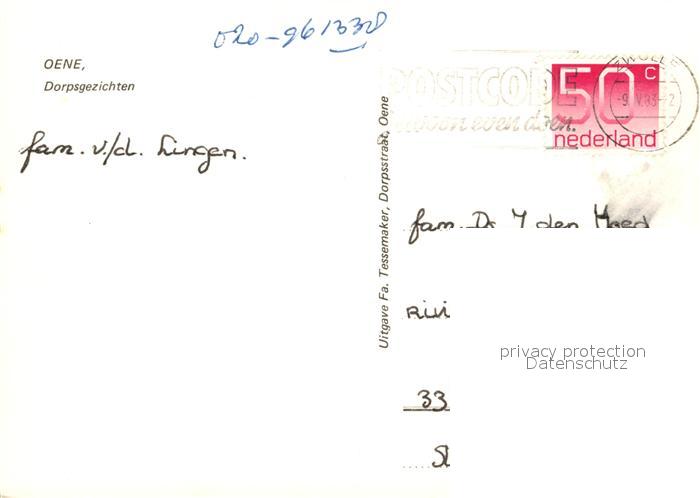 020-961338
OENE,
Dorpsgezichten
fam. v./d. Lingen.
Uitgave Fa. Tessemaker, Dorpsstraat, Oene
POSTCODE
gewoon even doen.
50 c
nederland
ZWOLLE
-9.V.83-2
fam. Ds. den Hoed
Rivi
33
Sl
privacy protection
Datenschutz